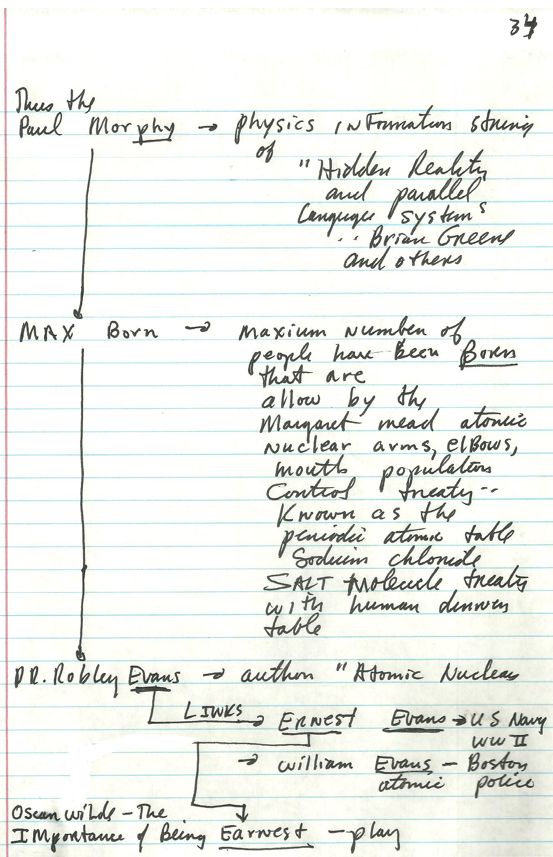 34
Thus the
Paul Morphy → physics information string
of
"Hidden Reality
and parallel
Language systems
.. Brian Greene
and others
MAX Born → Maxium number of
people have been Born
that are
allow by the
Margaret mead atomic
nuclear arms, elbows,
mouth population
Control treaty..
Known as the
periodic atomic table
Sodium chloride
SALT molecule treaty
with human dinner
table
DR. Robley Evans → author "Atomic Nuclear
LINKS → Ernest Evans → US Navy
WW II
→ william Evans – Boston
atomic police
Oscar wilde – The
Importance of Being Earnest – play